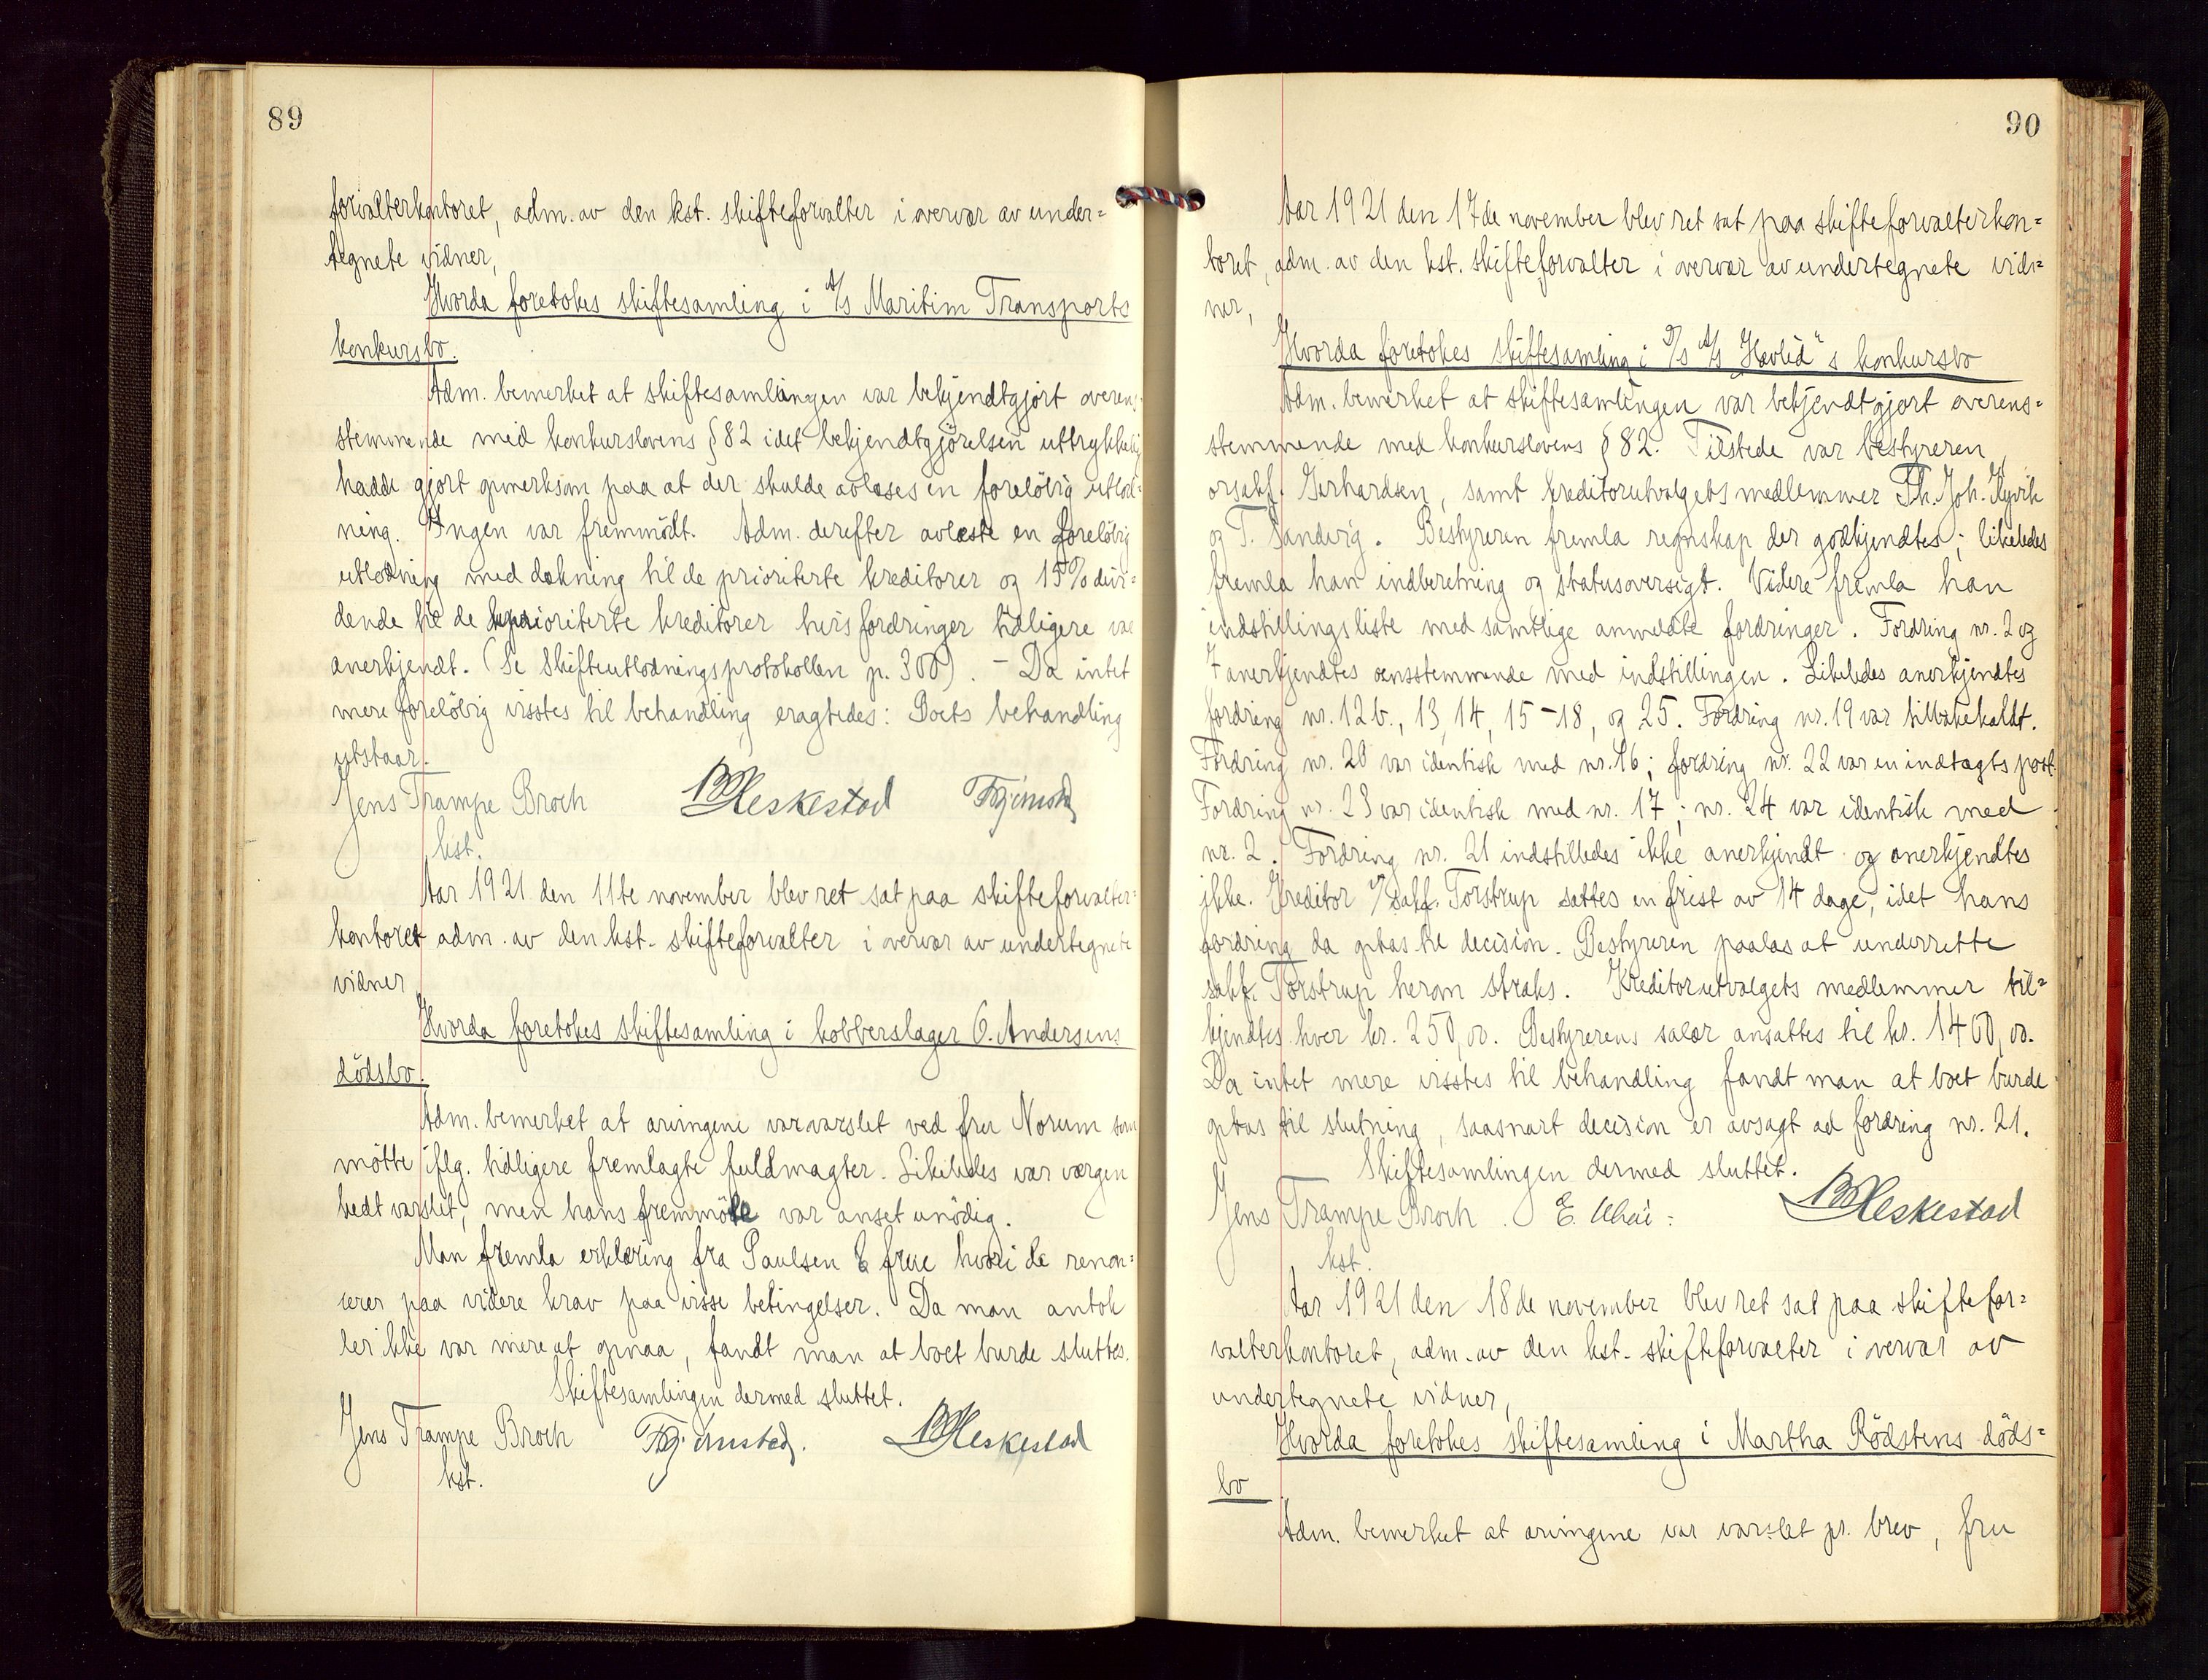 89
forvalterkontoret, adm. av den kst. skifteforvalter i overvær av under=
tegnete vidner,
Hvorda foretokes skiftesamling i A/S Maritim Transports
konkursbo.
Adm. bemerket at skiftesamlingen var bekjendtgjort overens-
stemmende med konkurslovens § 82 idet bekjendtgjörelsen uttrykkelig
hadde gjort opmerksom paa at der skulde avlæses en forelöbig utlod=
ning. Ingen var fremmödt. Adm. derefter avlæste en forelöbig
utlodning med dækning til de prioriterte kreditorer og 15% divi=
dende til de uprioriterte kreditorer hvis fordringer tidligere var
anerkjendt. (Se Skifteutlodningsprotokollen p. 300). - Da intet
mere forelöbig visstes til behandling eragtedes: Boets behandling
utstaar.
Jens Trampe Broch BHeskestad
kst.
Aar 1921 den 11te november blev ret sat paa skifteforvalter=
kontoret adm. av den kst. skifteforvalter i overvær av undertegnete
vidner
Hvorda foretokes skiftesamling i kobberslager O. Andersens
dödsbo.
Adm. bemerket at arvingene var varslet ved fru Norum som
mötte iflg. tidligere fremlagte fuldmagter. Likeledes var værgen
bedt varslet, men hans fremmöte var anset unödig.
Man fremla erklæring fra Paulsen & frue hvori de renon=
cerer paa videre krav paa visse betingelser. Da man antok
der ikke var mere at opnaa, fandt man at boet burde sluttes.
Skiftesamlingen dermed sluttet.
Jens Trampe Broch BHeskestad
kst.
90
Aar 1921 den 17de november blev ret sat paa skifteforvalterkon=
toret, adm. av den kst. skifteforvalter i overvær av undertegnete vid=
ner,
Hvorda foretokes skiftesamling i D/S A/S "Havlid"s konkursbo
Adm. bemerket at skiftesamlingen var bekjendtgjort overens=
stemmende med konkurslovens § 82. Tilstede var bestyreren,
orsakf. Gerhardsen, samt kreditorutvalgets medlemmer Th. Joh. Kyvik
og T. Sandvig. Bestyreren fremla regnskap der godkjendtes; likeledes
fremla han indberetning og statusoversigt. Videre fremla han
indstillingsliste med samtlige anmeldte fordringer. Fordring nr. 2 og
7 anerkjendtes oensstemmende med indstillingen. Likeledes anerkjendtes
fordring nr. 12b., 13, 14, 15-18, og 25. Fordring nr. 19 var tilbakekaldt.
Fordring nr. 20 var identisk med nr. 16; fordring nr. 22 var en indtægtspost.
Fordring nr. 23 var identisk med nr. 17; nr. 24 var identisk med
nr. 2. Fordring nr. 21 indstilledes ikke anerkjendt og anerkjendtes
ikke. Kreditor o/sakf. Torstrup sattes en frist av 14 dage, idet hans
fordring da optas til decision. Bestyreren paalas at underrette
sakf. Torstrup herom straks. Kreditorutvalgets medlemmer til=
kjendtes hver kr. 250,00. Bestyrerens salær ansattes til kr. 1400,00.
Da intet mere visstes til behandling fandt man at boet burde
optas til slutning, saasnart decision er avsagt ad fordring nr. 21.
Skiftesamlingen dermed sluttet.
Jens Trampe Broch. E. BHeskestad
kst.
Aar 1921 den 18de november blev ret sat paa skiftefor=
valterkontoret, adm. av den kst. skifteforvalter i overvær av
undertegnete vidner,
Hvorda foretokes skiftesamling i Martha Rödstens döds=
bo
Adm. bemerket at arvingene var varslet pr. brev, fru